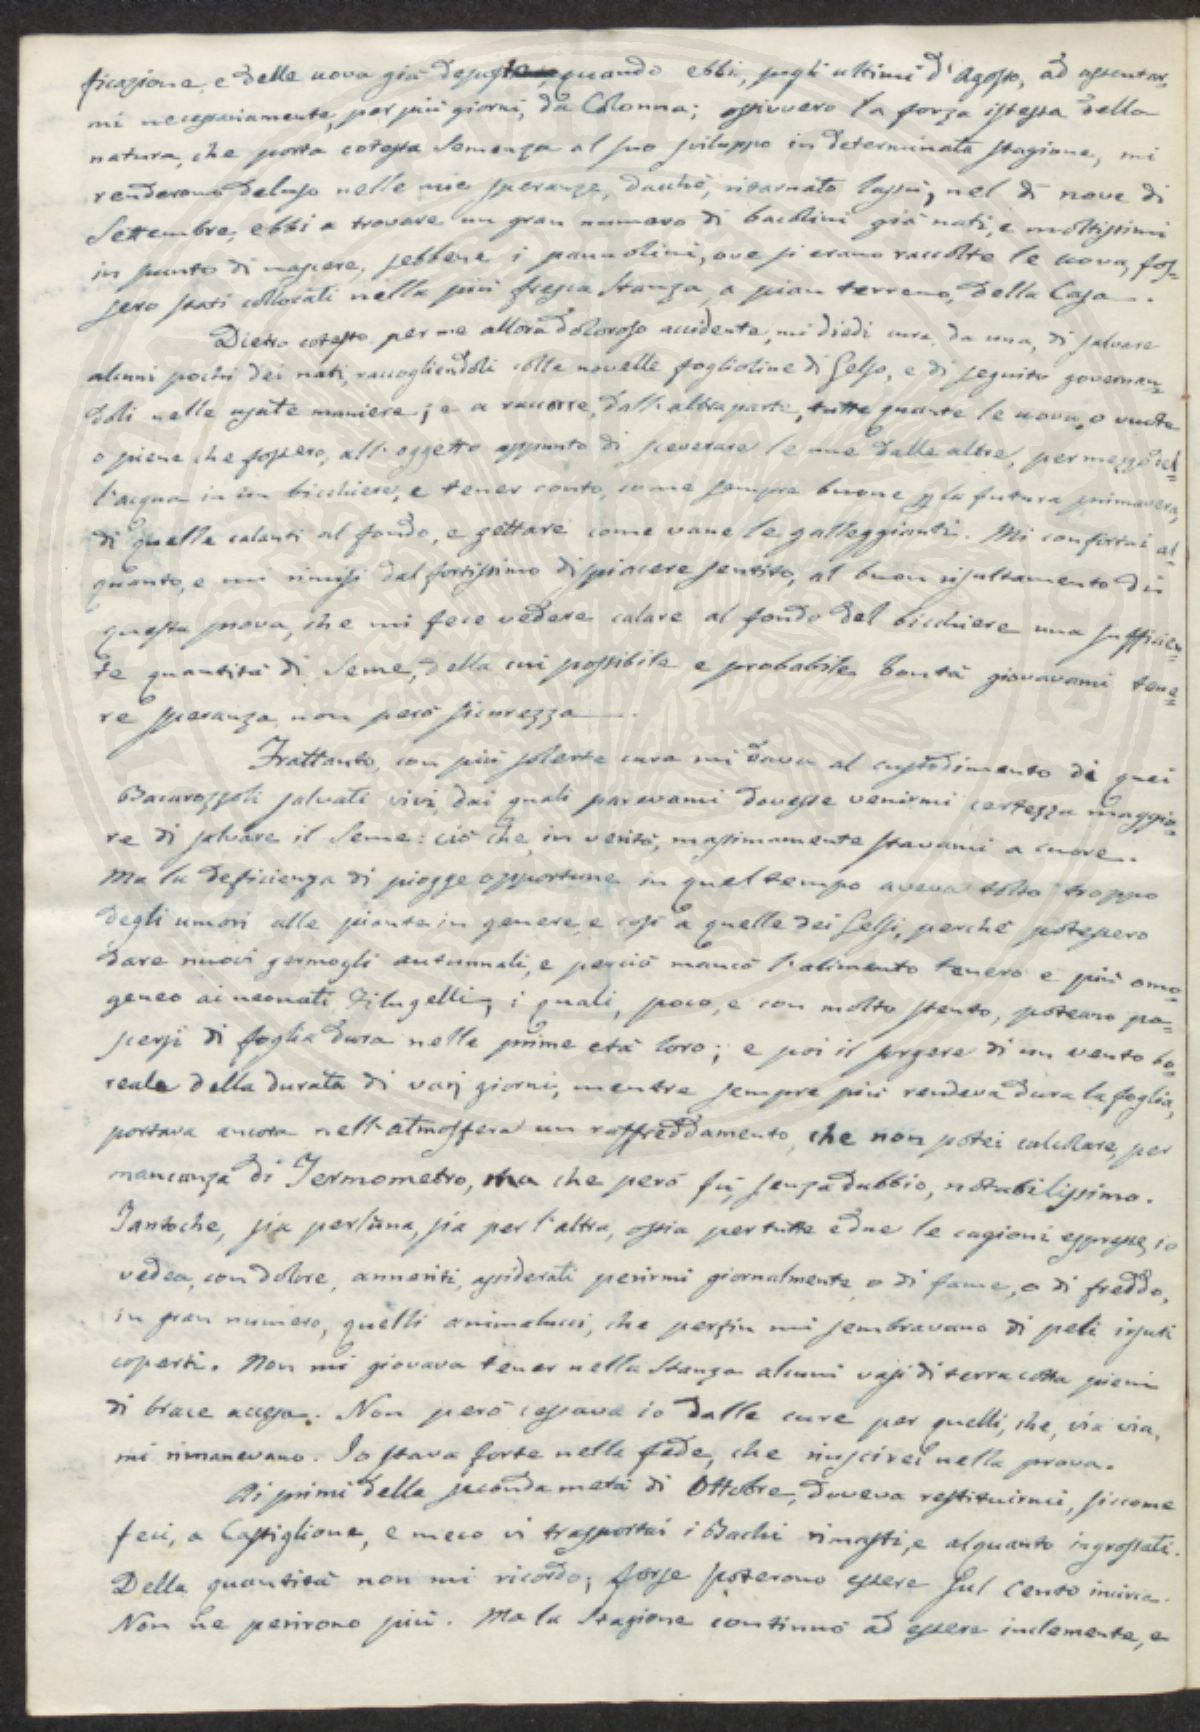 ficazione, e delle uova già deposte, quando ebbi, sugli ultimi d'Agosto, ad assentar,
mi necessariamente, per più giorni, da Colonna; ossivvero la forza istessa della
natura, che porta cotesta Semenza al suo sviluppo in determinata stagione, mi
renderono deluso nelle mie speranze, dacchè, ritornato lassù, nel dì nove di
Settembre, ebbi a trovare un gran numero di bacolini già nati, e moltissimi
in punto di nascere, sebbene i pannolini, ove si erano raccolte le uova, fos=
sero stati collocati nella più fresca Stanza, a pian terreno, della Casa.
Dietro cotesto, per me allora doloroso accidente, mi diedi cura, da una, di salvare
alcuni pochi dei nati, raccogliendoli colle novelle foglioline di Gelso, e di seguito governan=
doli nelle usate maniere; e a raccorre, dall'altra parte, tutte quante le uova, o vuote
o piene che fossero, all'oggetto appunto di sceverare le une dalle altre, per mezzo del=
l'acqua in un bicchiere, e tener conto, come sempre buone p la futura primavera,
di quelle calanti al fondo, e gettare come vane le galleggianti. Mi confortai al=
quanto, e mi rimisi dal fortissimo dispiacere sentito, al buon risultamento di
questa prova, che mi fece vedere calare al fondo del bicchiere una sufficien=
te quantità di Seme, della cui possibile e probabile bontà giovavami tene=
re speranza, non però sicurezza.
Frattanto, con più solerte cura mi dava al custodimento di quei
Bacarozzoli salvati vivi, dai quali parevami dovesse venirmi certezza maggio=
re di salvare il Seme: ciò che, in verità, massimamente stavami a cuore.
Ma la deficienza di piogge opportune in quel tempo aveva tolto troppo
degli umori alle piante in genere, e così a quelle dei Gelsi, perchè potessero
dare nuovi germogli autunnali, e perciò mancò l'alimento tenero e più omo=
geneo ai neonati Filugelli, i quali, poco, e con molto stento, poteano pa=
scersi di foglia dura nelle prime età loro; e poi il sorgere di un vento bo=
reale della durata di varj giorni, mentre sempre più rendeva dura la foglia,
portava ancora nell'atmosfera un raffreddamento, che non potei calcolare, per
mancanza di Termometro, ma che però fù, senza dubbio, notabilissimo.
Tantoche, sia per l'una, sia per l'altra, ossia per tutte e due le cagioni espresse, io
vedea, con dolore, anneriti, assiderati perirmi giornalmente, o di fame, o di freddo,
in gran numero, quelli animalucci, che perfin mi sembravano di peli irsuti
coperti. Non mi giovava tener nella Stanza alcuni vasi di terra cotta pieni
di brace accesa. Non però cessava io dalle cure per quelli, che, via via,
mi rimanevano. Io stava forte nella fede, che riuscirei nella prova.
Ai primi della seconda metà di Ottobre, doveva restituirmi, siccome
feci, a Castiglione, e meco vi trasportai i Bachi rimasti, e alquanto ingrossati.
Della quantità non mi ricordo; forse poterono essere sul cento incirca.
Non ne perirono più. Ma la Stagione continuò ad essere inclemente, e